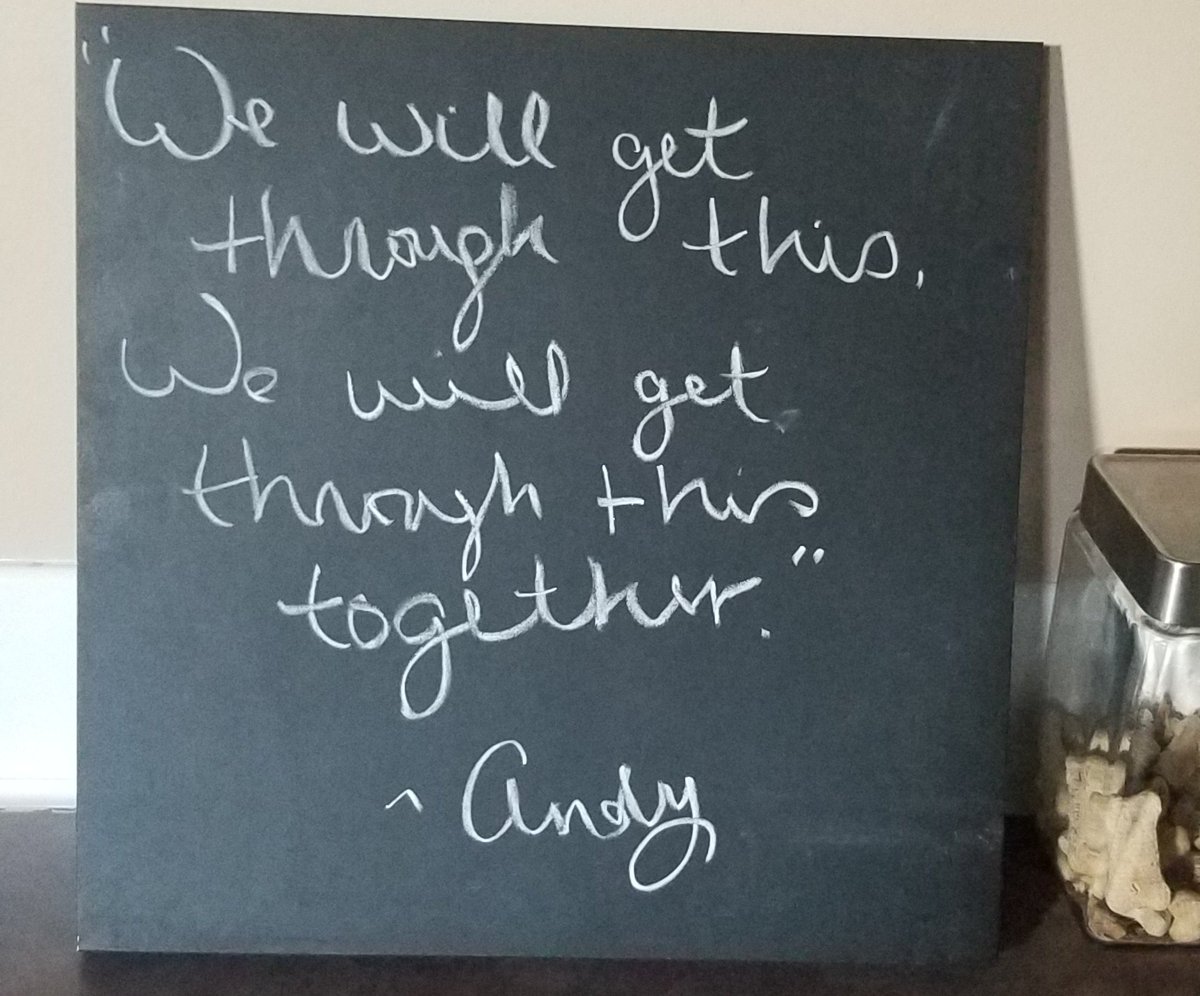 "We will get
through this.
We will get
through this
together."
^ Andy